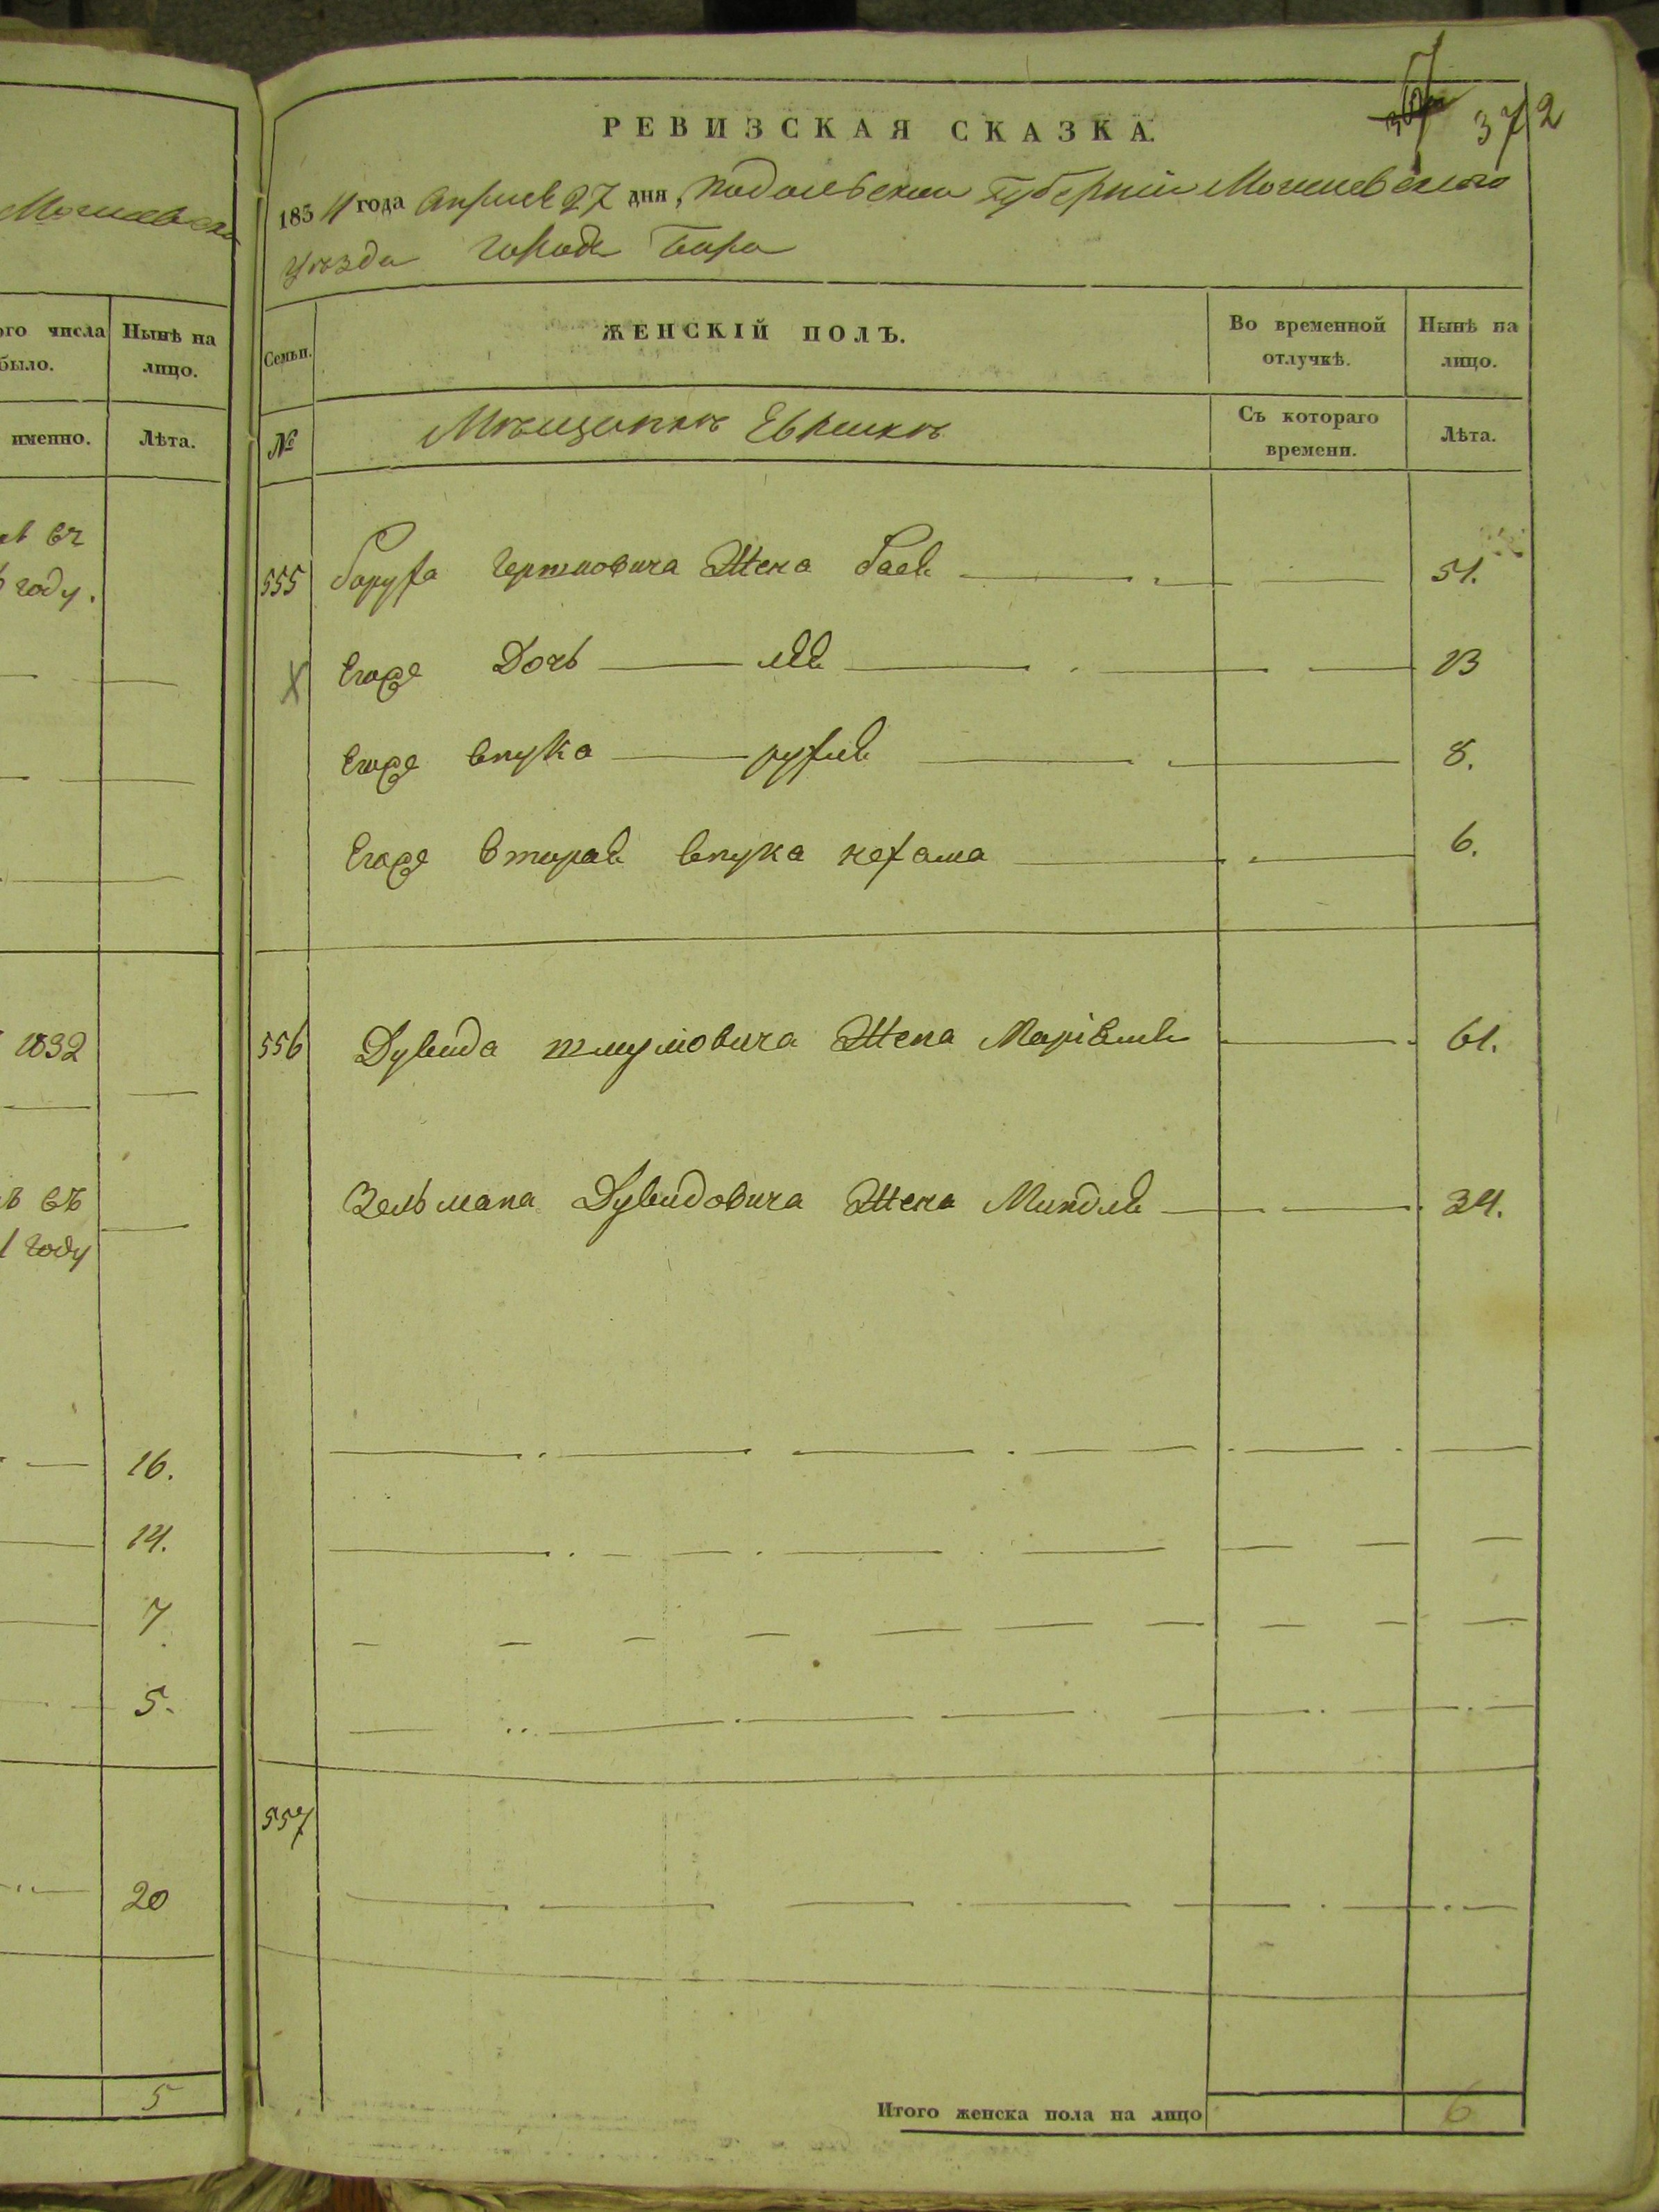 Могилевска
ого числа
было.
Нынѣ на
лицо.
именно.
Лѣта.
въ
году.
1832
въ
году
16.
14.
7
5.
20
5
372
РЕВИЗСКАЯ СКАЗКА.
1834 года Апреля 27 дня, Подольскои Губерніи Могилевского
уезда города Бара
Семьи.
ЖЕНСКІЙ ПОЛЪ.
Во временной
отлучкѣ.
Нынѣ на
лицо.
№
Мѣщанкъ Евреикъ
Съ котораго
времени.
Лѣта.
555 Боруха Жена Бася 51.
X Егоже Дочь 13
Егоже внука рухля 8.
Егоже вторая внука нехама 6.
556 Дувида шмулiовича Жена Марiамля 61.
Зельмана Дувидовича Жена Миндля 34.
557
Итого женска пола на лицо 6